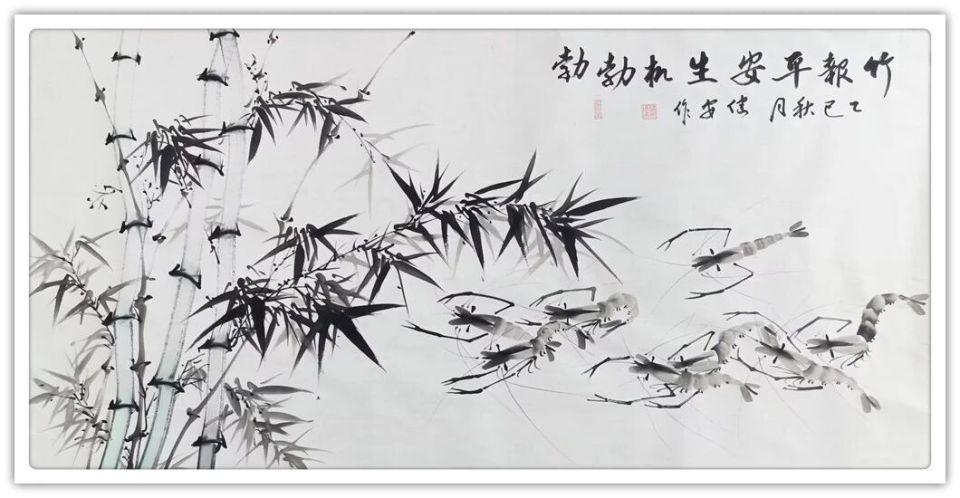 竹報平安生机勃勃
乙巳秋月安作